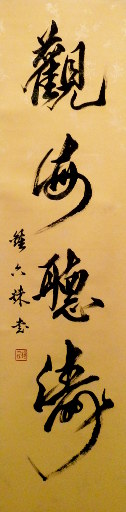 觀海聽濤
鍾六林書